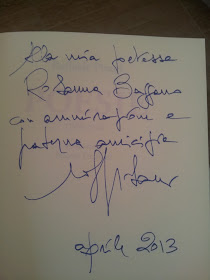 Alla mia poetessa
Rosanna Bazzano
con ammirazione e
paterna amicizia
aprile 2013